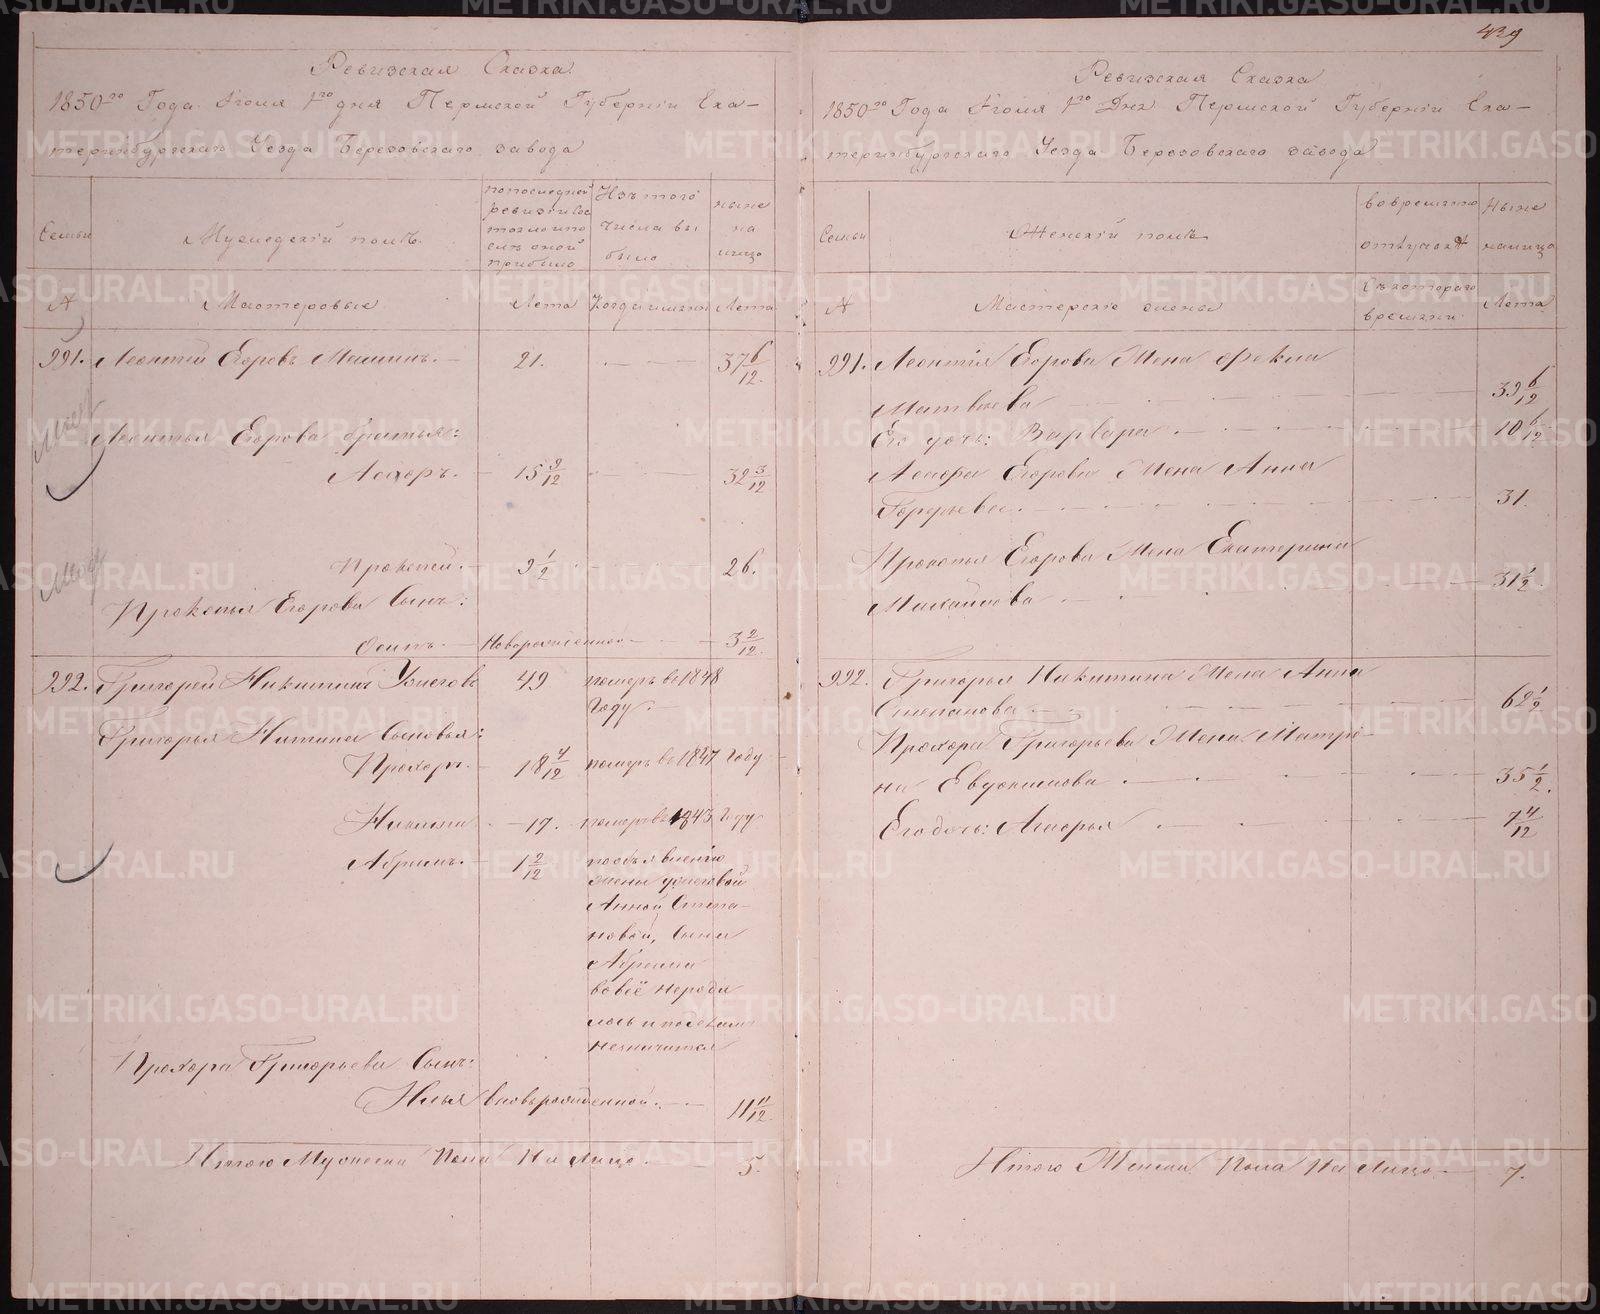 439
Ревизская Сказка
1850го Года Июля 1го дня Пермской Губернiи Ека-
теринбургскаго Уезда Березовскаго завода
Семьи
Мужескiй полъ.
попоследней
ревизiи сос
тояло ипо
слѣ оной
прибыло
Изътого
числа вы
было
ныне
на
лицо
№
Мастеровые
Лета
Когда имянно
Лета
991. Леонтiй Егоровъ 21. 37 6/12.
Леонтья Егорова братья:
15 9/12 32 3/12
Прокопей. 9 1/2 26.
Прокопья Егорова Сынъ:
Осипъ. Новорожденной 3 2/12.
992. Григорей Никитинъ 49 померъ въ 1848
Году.
Григорья Никитина Сыновья:
Прохоръ. 18 4/12 померъ въ 1847 Году
Никита 17. померъ въ 1843 Году
Абрамъ. 1 2/12 пообъявленiю
жены
Анной Степа-
новой, Сына
Абрама
вовсё нероди
лось
незначится
Прохора Григорьева Сынъ:
Илья вновьрожденной. 11 11/12.
Итого Мужеска Пола На Лицо 5.
Ревизская Сказка
1850го Года Июля 1го Дня Пермской Губернiи Ека-
теринбургскаго Уезда Березовскаго завода
Семьи
Женскiй полъ
вовременно
отлучкѣ
Ныне
налицо
№
Мастерскiе жены
Съкотораго
времяни
Лета
991. Леонтiя Егорова Жена Фекла
Матвѣева 39 6/12
Его дочь: Варвара 10 6/12
Егорова Жена Анна
Гордѣева. 31.
Прокопья Егорова Жена Екатерина
Михайлова 31 1/2
992. Григорья Никитина Жена Анна
Степанова 62 1/2
Прохора Григорьева Жена Матре-
на Евдокимова 35 1/2.
Его дочь: 4/12
Итого Женска Пола На Лицо 7.
METRIKI.GASO-URAL.RU